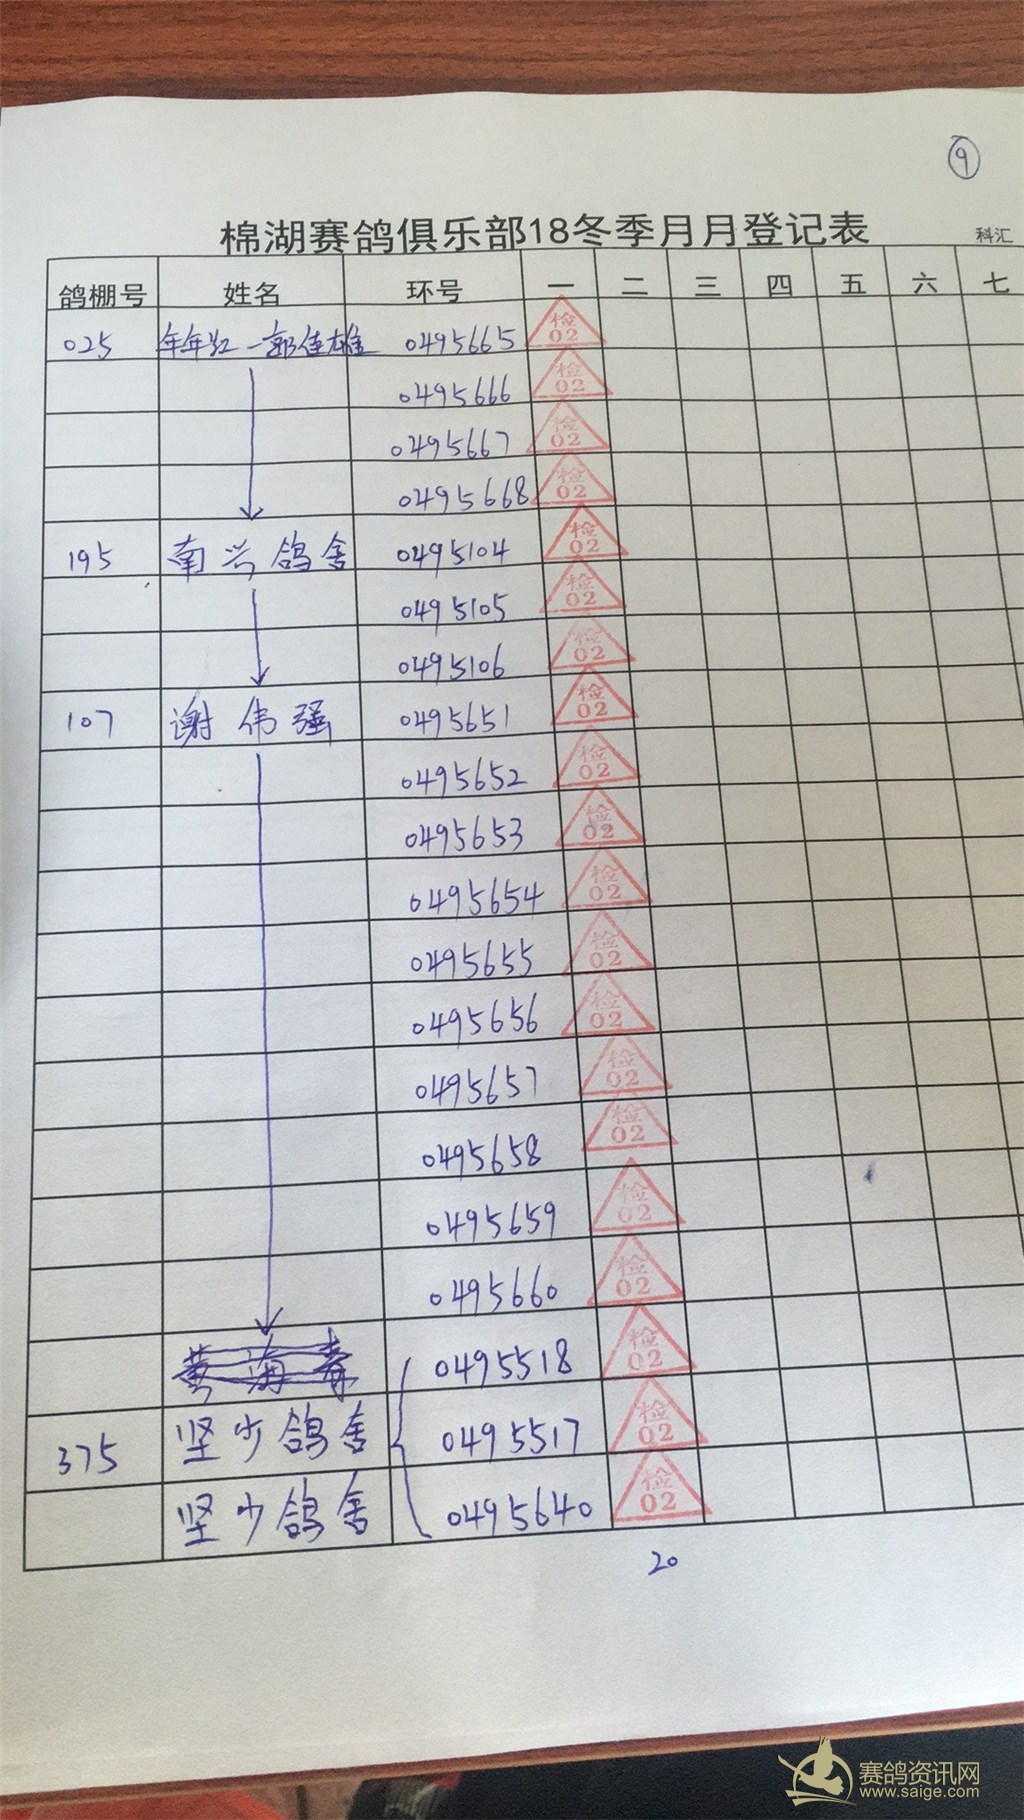 9
棉湖赛鸽俱乐部18冬季月月登记表
科汇
鸽棚号 姓名 环号 一 二 三 四 五 六 七
025 年年红-郭佳雄 0495665 检02
0495666 检02
0495667 检02
0495668 检02
195 南兴鸽舍 0495104 检02
0495105 检02
0495106 检02
107 谢伟强 0495651 检02
0495652 检02
0495653 检02
0495654 检02
0495655 检02
0495656 检02
0495657 检02
0495658 检02
0495659 检02
0495660 检02
0495518 检02
375 坚少鸽舍 0495517 检02
坚少鸽舍 0495640 检02
20
赛鸽资讯网
www.saige.com